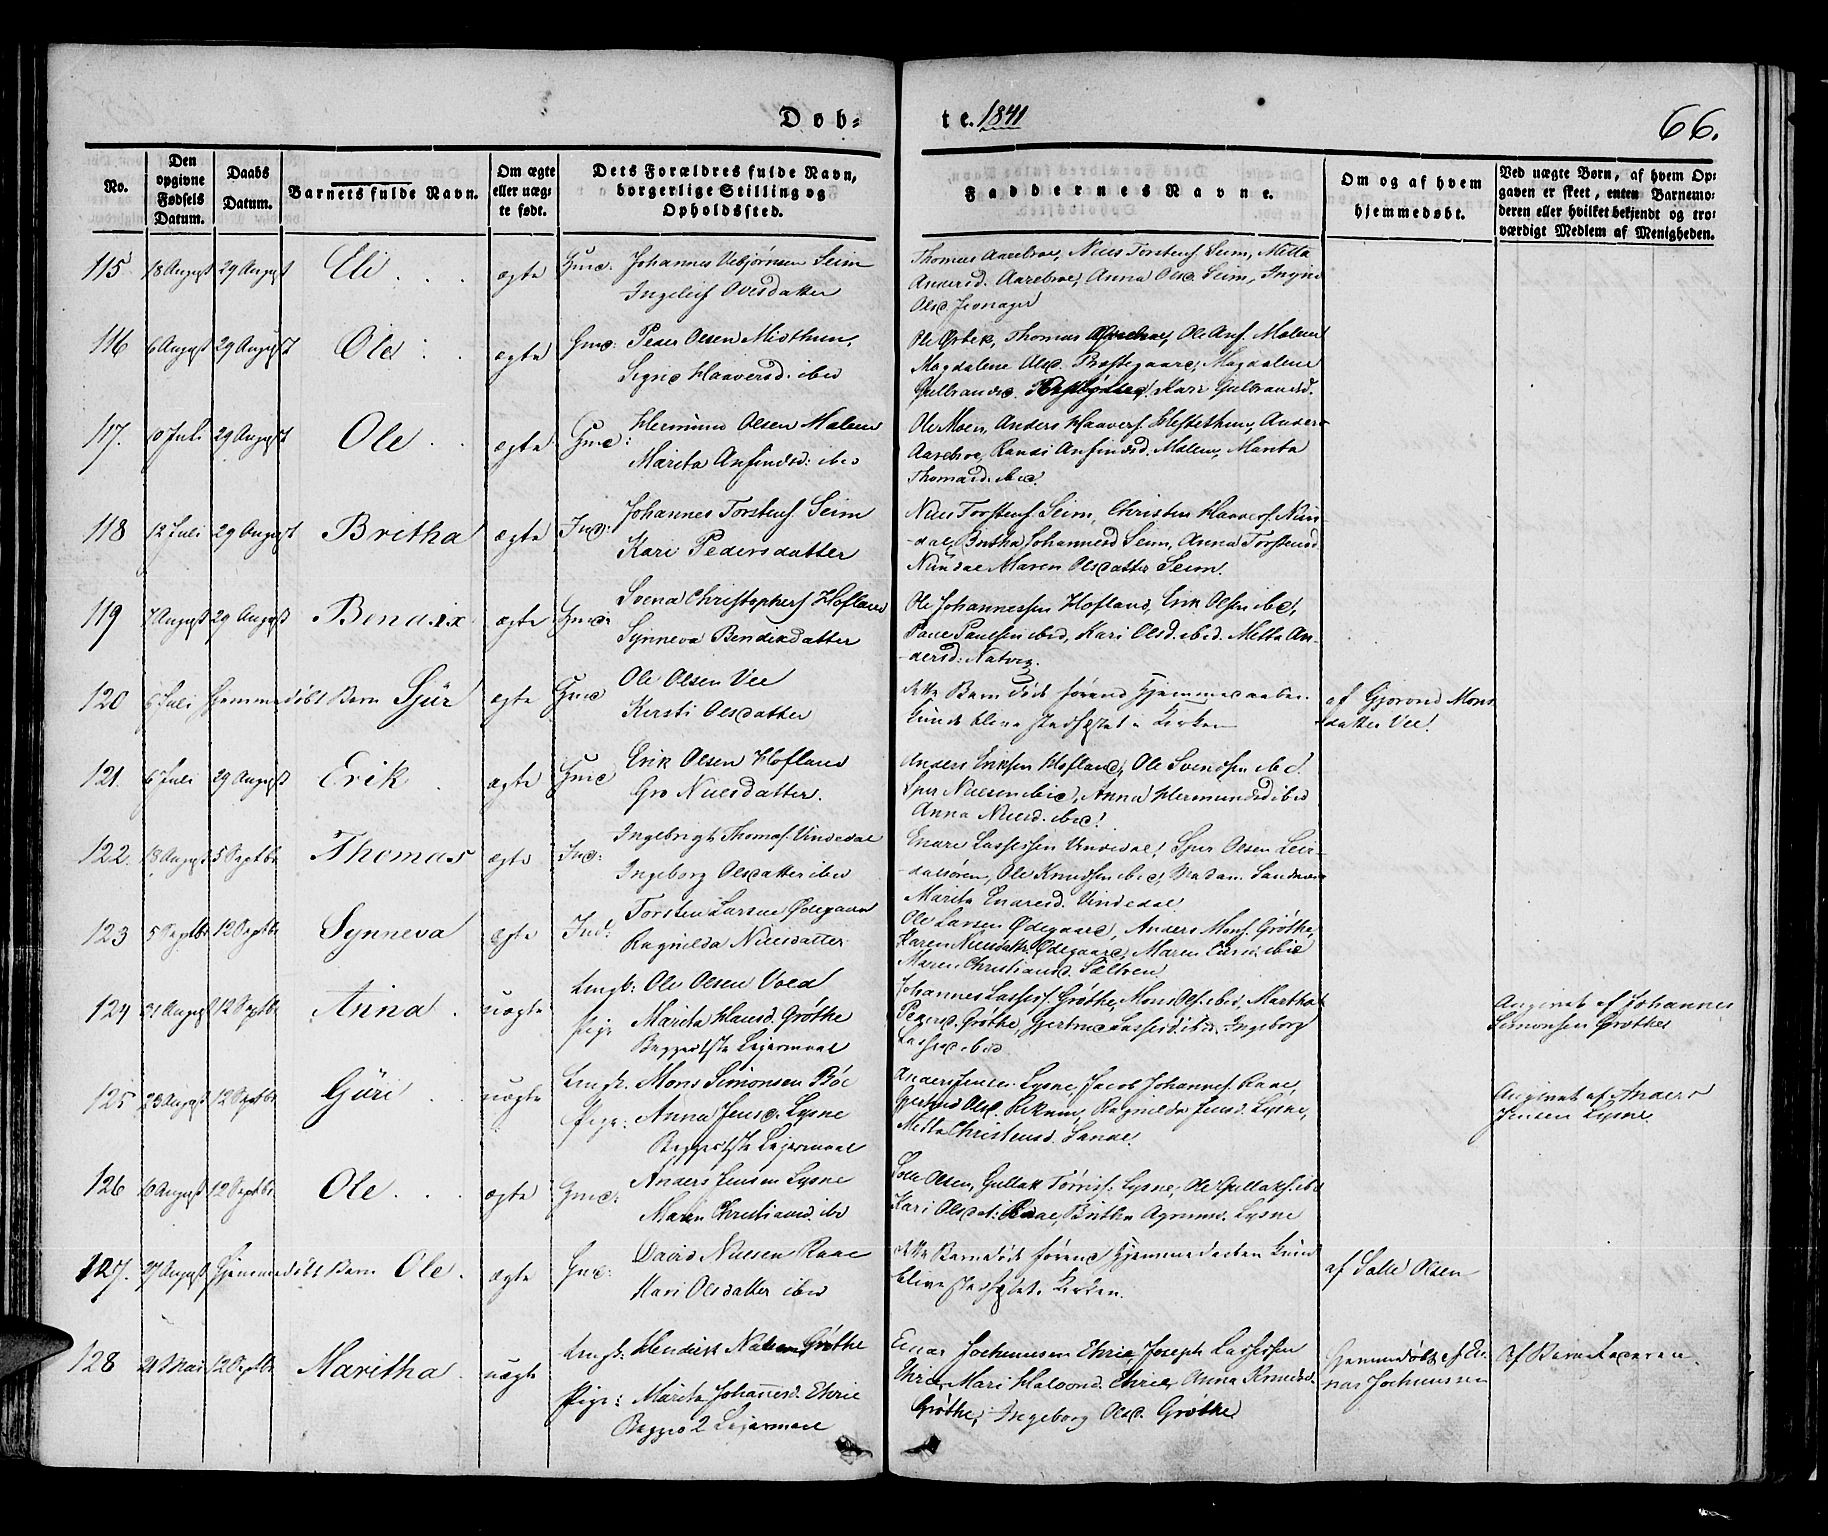 Døb=
te. 1841
66.
No.
Den opgivne Fødsels Datum.
Daabs Datum.
Barnets fulde Navn.
Om ægte eller uæg-te født.
Dets Forældres fulde Navn, borgerlige Stilling og Opholdssted.
Faddernes Navne.
Om og af hvem hjemmedøbt.
Ved uægte Børn, af hvem Op-gaven er skeet, enten Barnemo-deren eller hvilket bekjendt og tro-værdigt Medlem af Menigheden.
115 18 August 29 August Eli ægte Gmd: Johannes Seim
Ingeleif
Thomas Aarebroe, Niels Torstens. Seim, Metta
Andersd. Aarebroe, Anna Olsd. Seim,
Olsd.
116 6 August 29 August Ole ægte Gmd: Peder Olsen
Signe Haaversd. ibid
Thomas Ole Anf. Malum
Magdalene Olsd. Magdalene
Gulbrandsd. Kari Gulbrandsd.
117. 10 Juli 29 August Ole ægte Gmd: Hermund Olsen Malum
Marita Anfindsd: ibid
Ole Moen, Anders Haavers. Anders
Aarebroe, Randi Anfindsd. Malum, Marita
Thomasd. ibid.
118 12 Juli 29 August Britha ægte Ind: Johannes Torstens. Seim
Kari Pedersdatter
Niels Torstens. Seim, Christen Haavers. Nün
-dal, Britha Johannesd Seim, Anna Torstensd
Nündal Maren Olsdatter Seim.
119 7 August 29 August Bendix ægte Gmd: Svend Christophers Hofland
Synneva Bendiksdatter
Ole Johannessen Hofland, Erik Olsen ibid,
Paul Paulsen ibid, Kari Olsd. ibid. Metta An-
dersd: Natvig.
120 6 Juli Hjemmedøbt Barn Sjür ægte Gmd Ole Olsen Vee
Kersti Olsdatter
dette Barn døde førend Hjemmedaaben
kunde blive stadfæstet i Kirken
af Gjorond Mons
datter Vee.
121. 6 Juli 29 August Erik ægte Gmd Erik Olsen Hofland
Gro Nielsdatter.
Anders Eriksen Hofland, Ole Svendsen ibid.
Sjur Nielsen ibid, Anna Hermundsd ibid
Anna Nielsd. ibid.
122. 18 August 5 Septbr Thomas ægte Ind: Ingebrigt Thomas. Vindedal
Ingeborg Olsdatter ibid
Enare Lassesen Vindedal, Sjur Olsen Leir-
dalsøren, Ole Knudsen ibid, Madam
Marita Enaresd. Vindedal
123 5 Septbr 12 Septbr Synneva ægte Ind: Torsten Larsen Ødegaard
Ragnilda Nielsdatter
Ole Larsen Ødegaard, Anders Mons. Grøthe,
Karen Nielsdatter Ødegaard, Maren Larsd. ibid
Maren Christiansd.
124 31 August 12 Septbr Anna uægte Ungk: Ole Olsen Vold
Pige Marita Hansd. Grøthe
Begges 1ste Leiermaal
Johannes Lasses. Grøthe, Mons Ols. ibid, Martha
Pedersd. Grøthe, Gjertrud Lassesd ibid. Ingeborg
Lassesd ibid
Angivet af Johannes
Simonsen Grøthe
125 23 August 12 Septbr Güri uægte Ungk. Mons Simonsen Böe
Pige: Anna Jensd. Lysne
Begges 1ste Leiermaal
Anders Jensen Lysne, Jacob Johannes. Raae,
Gjertrud Olsd. Ragnilda Jensd. Lysne,
Metta Christensd. Sande.
Angivet af Anders
Jensen Lysne
126 6 August 12 Septbr Ole ægte Gmd: Anders Jensen Lysne
Maren Christiansd. ibd
Olsen, Gullak Tørris: Lysne, Ole Gullaks. ibd
Kari Olsdat: Raae, Britha Lysne
127. 27 August Hjemmedøbt Barn Ole ægte Gmd: David Nielsen Raae
Kari Olsdatter ibid
dette Barn døde førend Hjemmedaaben kunde
blive stadfæstet i Kirken.
af Salle Olsen
128 21 Mai 12 Septbr Maritha uægte Ungk: Hendrik Nielsen Grøthe
Pige: Marita Johannesd. Ehrie
Begges 2 Leiermaal
Enar Jochumsen Ehrie, Joseph Lassesen
Ehrie, Mari Halvord. Ehrie, Anna Knudsd.
Grøthe, Ingeborg Olsd. Grøthe
Hjemmedøbt af Ei-
nar Jochumssen
Af Barnefaderen